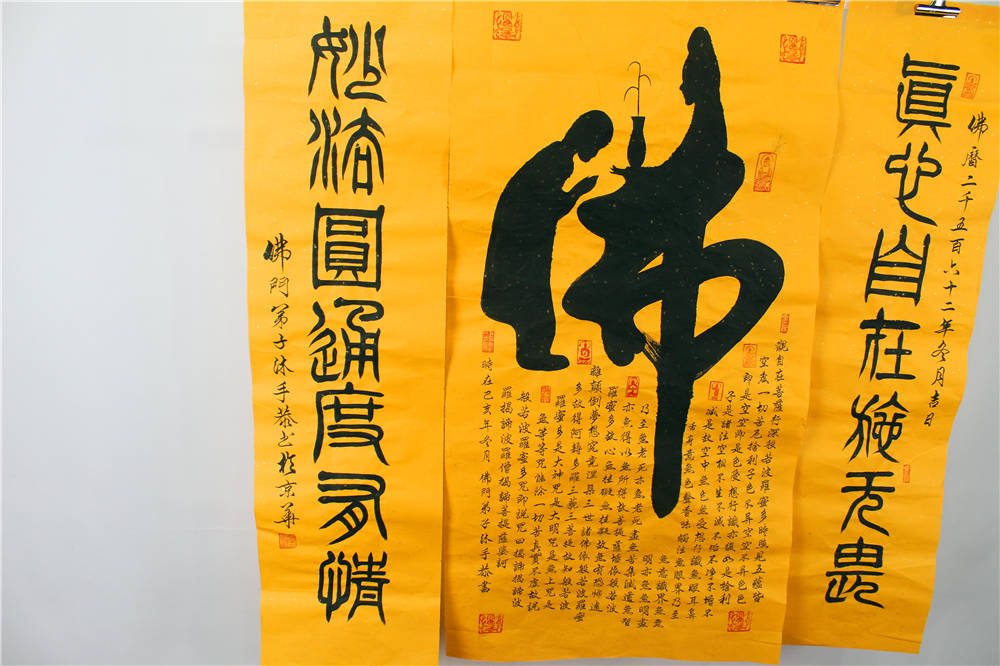 眞心自在施无畏
佛曆二千五百六十二年冬月吉日
佛
觀自在菩薩行深般若波羅蜜多時照見五蘊皆
空度一切苦厄舍利子色不異空空不異色色
即是空空即是色受想行識亦復如是舍利
子是諸法空相不生不滅不垢不淨不增不
減是故空中無色無受想行識無眼耳鼻
舌身意無色聲香味觸法無眼界乃至
無意識界無無
明亦無無明盡
乃至無老死亦無老死盡無苦集滅道無智
亦無得以無所得故菩提薩埵依般若波
羅蜜多故心無挂礙無挂礙故無有恐怖遠
離顛倒夢想究竟涅槃三世諸佛依般若波羅蜜
多故得阿耨多羅三藐三菩提故知般若波
羅蜜多是大神咒是大明咒是無上咒是
無等等咒能除一切苦真實不虛故說
般若波羅蜜多咒即說咒曰揭諦揭諦波
羅揭諦波羅僧揭諦菩提薩婆訶
時在己亥年冬月佛門弟子沐手恭書
妙法圓通度有情
佛門弟子沐手恭書於京華